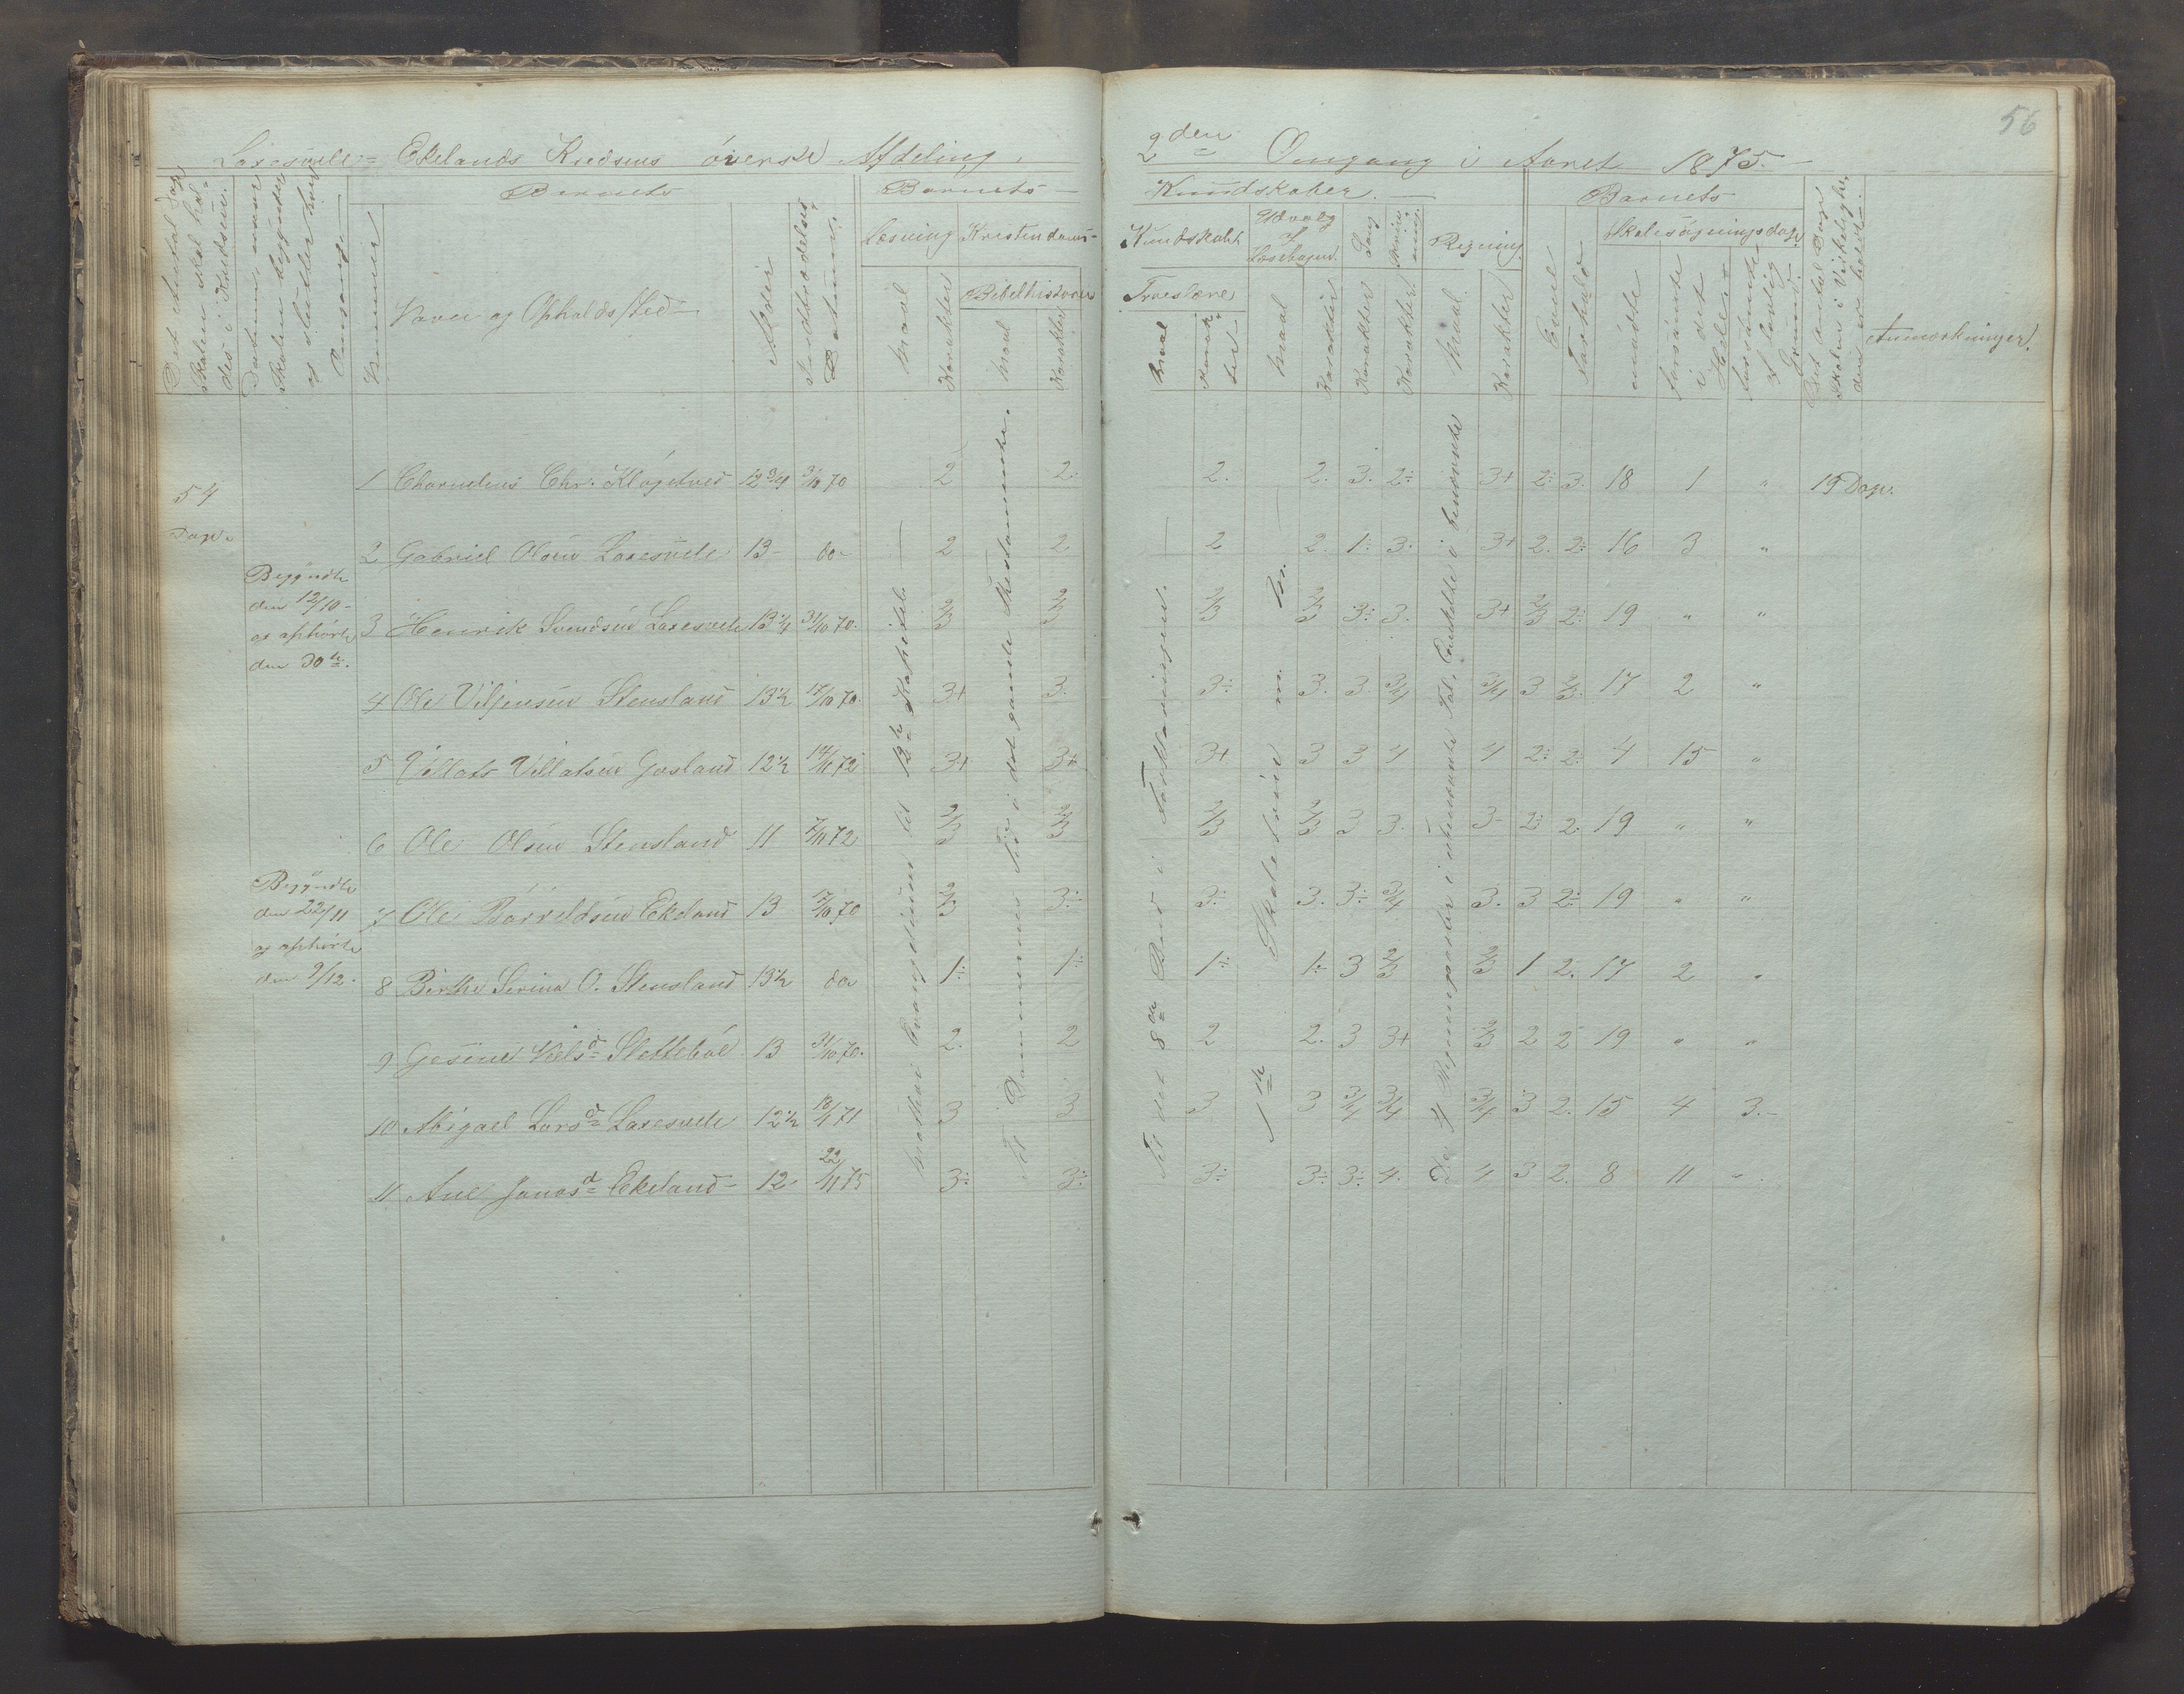 56
Laxesvele = Ekelands Kredsens øverste Afdeling.
2den Omgang i Aaret 1875.
Det Antal Dage Skolen skal holdes i Kredsen.
Datum naar Skolen begynder og slutter hver Omgang
Nummer
Barnets
Navn og Opholds/sted
Alder
Indtrædelses Datum.
Barnets
Læsning
Kristendoms-
Maal
Karakter
Bibelhistorie
Maal
Karakter
Kundskaber.
Kundskab
Troeslære
Maal
Karakter
Udvalg af Læsebogen.
Maal
Karakter
Sang
Karakter
Skrivning.
Karakter
Regning
Maal
Karakter
Barnets
Evner
Forhold
Skolesøgningsdage
mødte
forsømte i det Hele
forsømte af lovlig Grund
Det Antal Dage Skolen i Virkelighe den er holdt.
Anmærkninger.
54
Dage.
Begyndte
den 12/10-
og ophørte
den 30te.
Begyndte
den 22/11
og ophørte
den 9/12.
1 Chornelius Chr. Kløgetved 12 3/4 31/10 70 2 2. 2. 2. 3. 2÷ 3+ 2÷ 3. 18 1 " 19 Dage.
2 Gabriel Olsen Laxesvele 13- do- 2 2 2 2. 1÷ 3. 3+ 2. 2÷ 16 3 "
3 Henrik Svendsen Laxesvele 13 1/4 31/10 70. 2/3 2/3 2/3 2/3 3÷ 3. 3+ 2/3 2÷ 19 " "
4 Ole Viljensen Stensland 13 1/2 17/10 70. 3+ 3. 3÷ 3. 3. 3/4 3/4 3 2/3. 17 2 "
5 Villats Villatsen Gosland 12 1/2 14/11 72 3+ 3+ 3+ 3 3 4 4 2÷ 2÷ 4 15 "
6 Ole Olsen Stensland 11 7/11 72 2/3 2/3 2/3 2/3 3 3. 3- 2÷ 2. 19 " "
7 Ole Børreldsen Ekeland 13 17/10 70 2/3 3÷ 3÷ 3. 3÷ 3/4 3. 3 2÷ 19 " "
8 Birthe Serina O. Stensland 13 1/2 do 1÷ 1÷ 1÷ 1÷ 3 2/3 2/3 1 2. 17 2 "
9 Gesine Nielsd Slettebøe 13 31/10 70. 2. 2 2 2. 3 3+ 2/3 2 2 19 " "
10 Abigael Larsd Laxesvele 12 1/2 18/4 71 3 3 3 3 3/4 3/4 3/4 3 2. 15 4 3.-
11 Ane Jonasd Ekeland- 12- 22/11 75 3÷ 3÷ 3÷ 3÷ 3÷ 4. 4 3 2. 8 11 "
Matthæi Evangelium til 12te Kapitel.
Til Dommernes Tid i det gamle Testamente.
Til det 8de Bud i Forklaringen.
1te Skoletrin m. m.
De 4 Regningsarter i ubenævnte Tal, Enkelte i benævnte